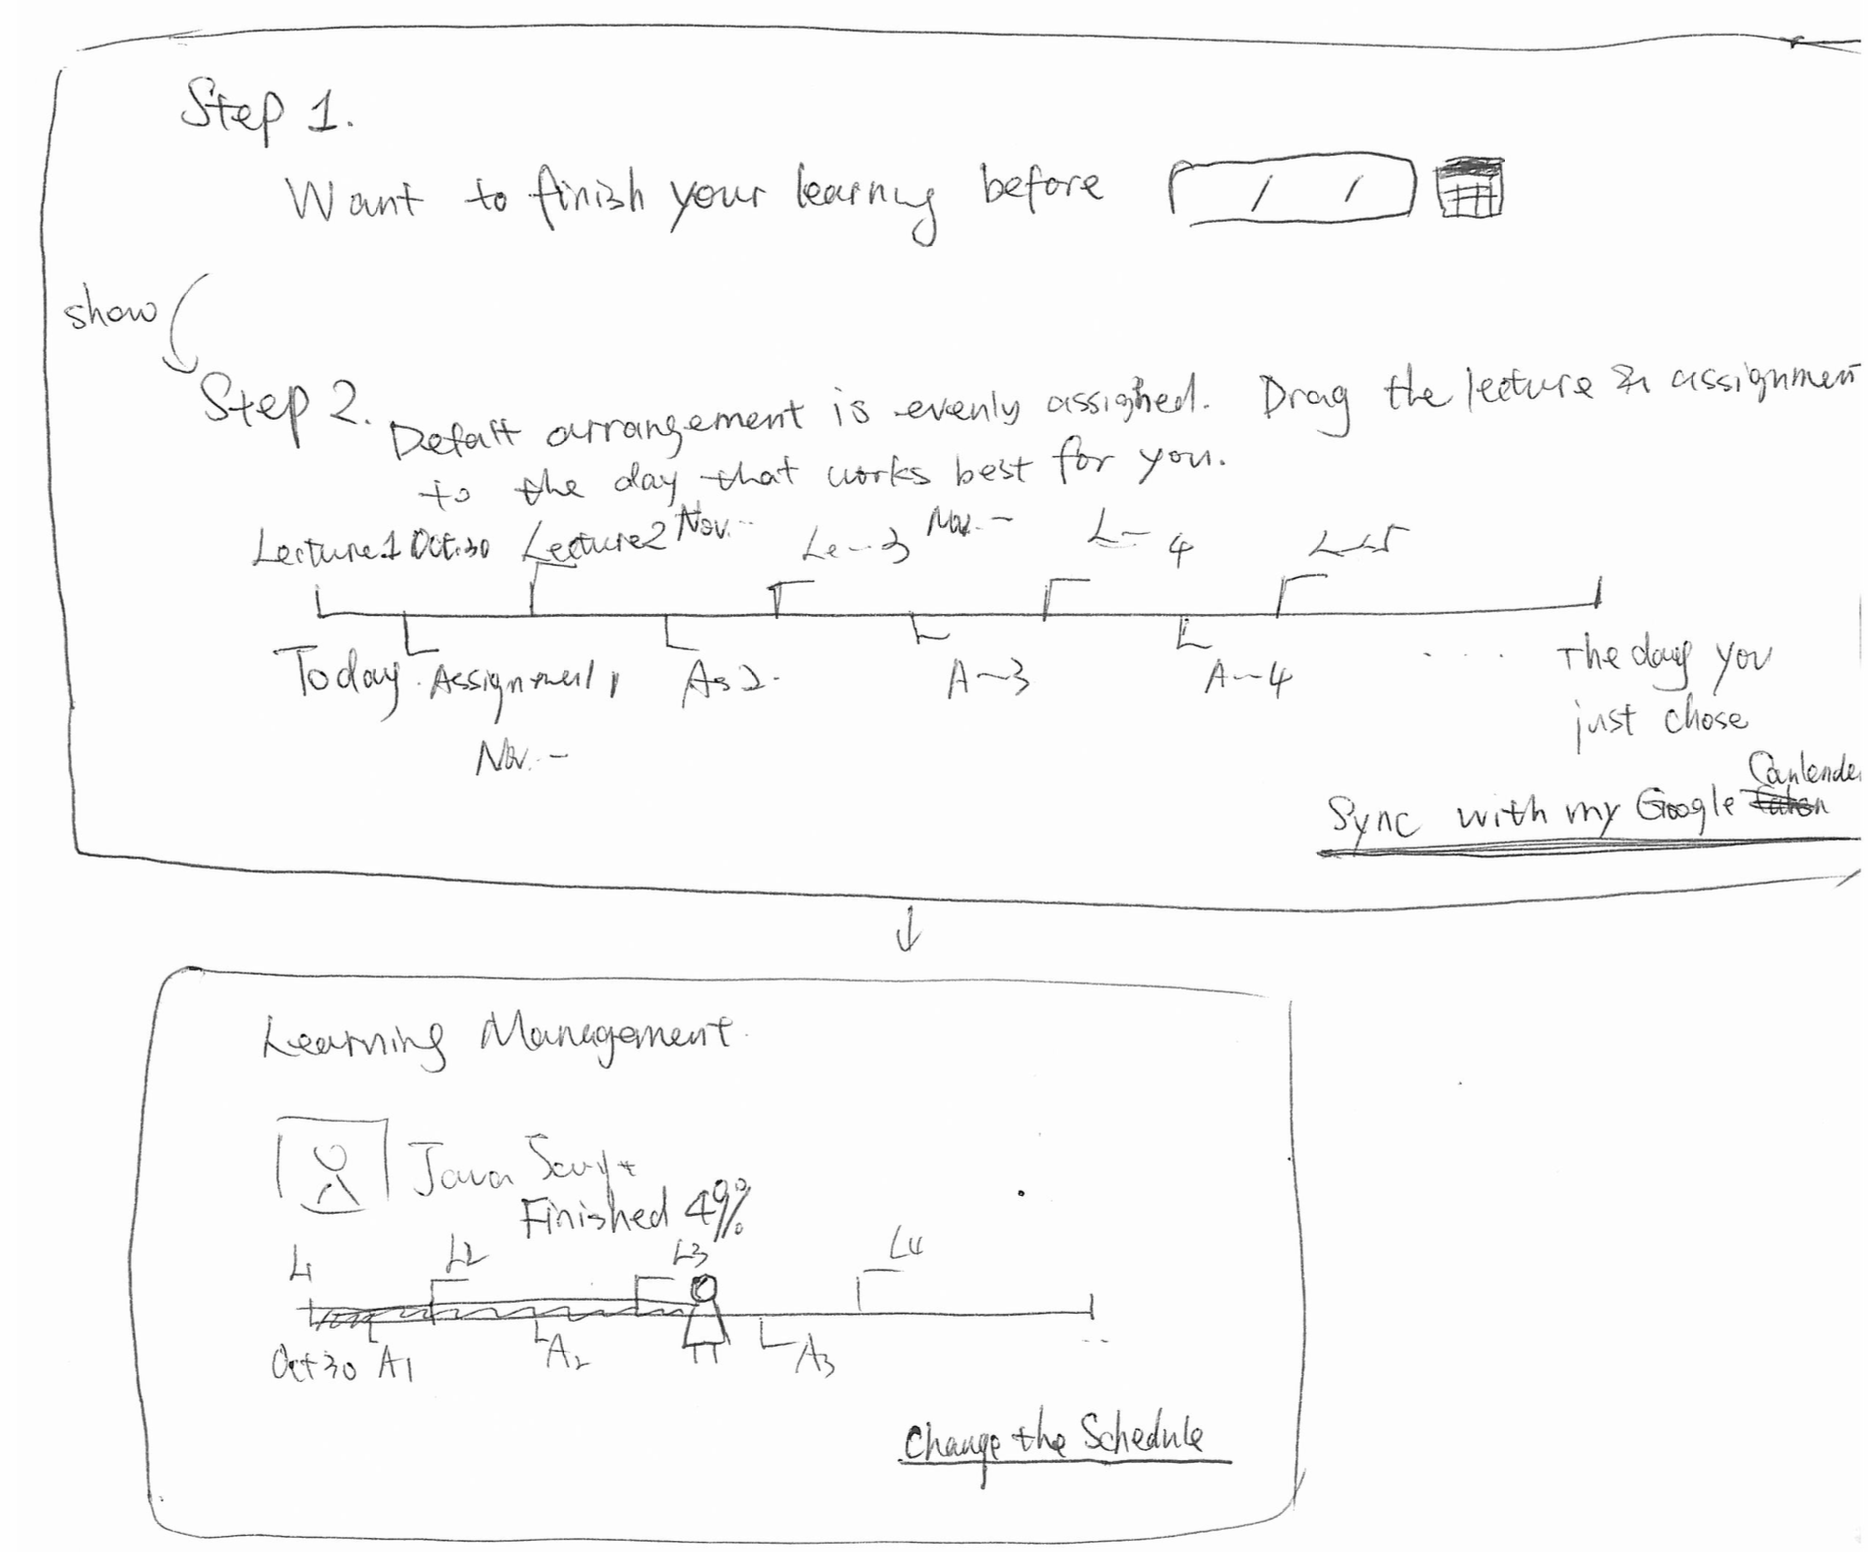 Step 1.
Want to finish your learning before / /
show
Step 2. Default arrangement is evenly assigned. Drag the lecture & assignment
to the day that works best for you.
Lecture1 Oct.30 Lecture2 Nov. -- Le--3 Nov. - L- 4 L--5
Today. Assignment 1 As 2. A--3 A--4 .... The day you
just chose
Nov. --
Canlender
Sync with my Google
Learning Management.
Java Script
Finished 49%
L1 L2 L3 L4
Oct 30 A1 A2 A3 --
Change the Schedule